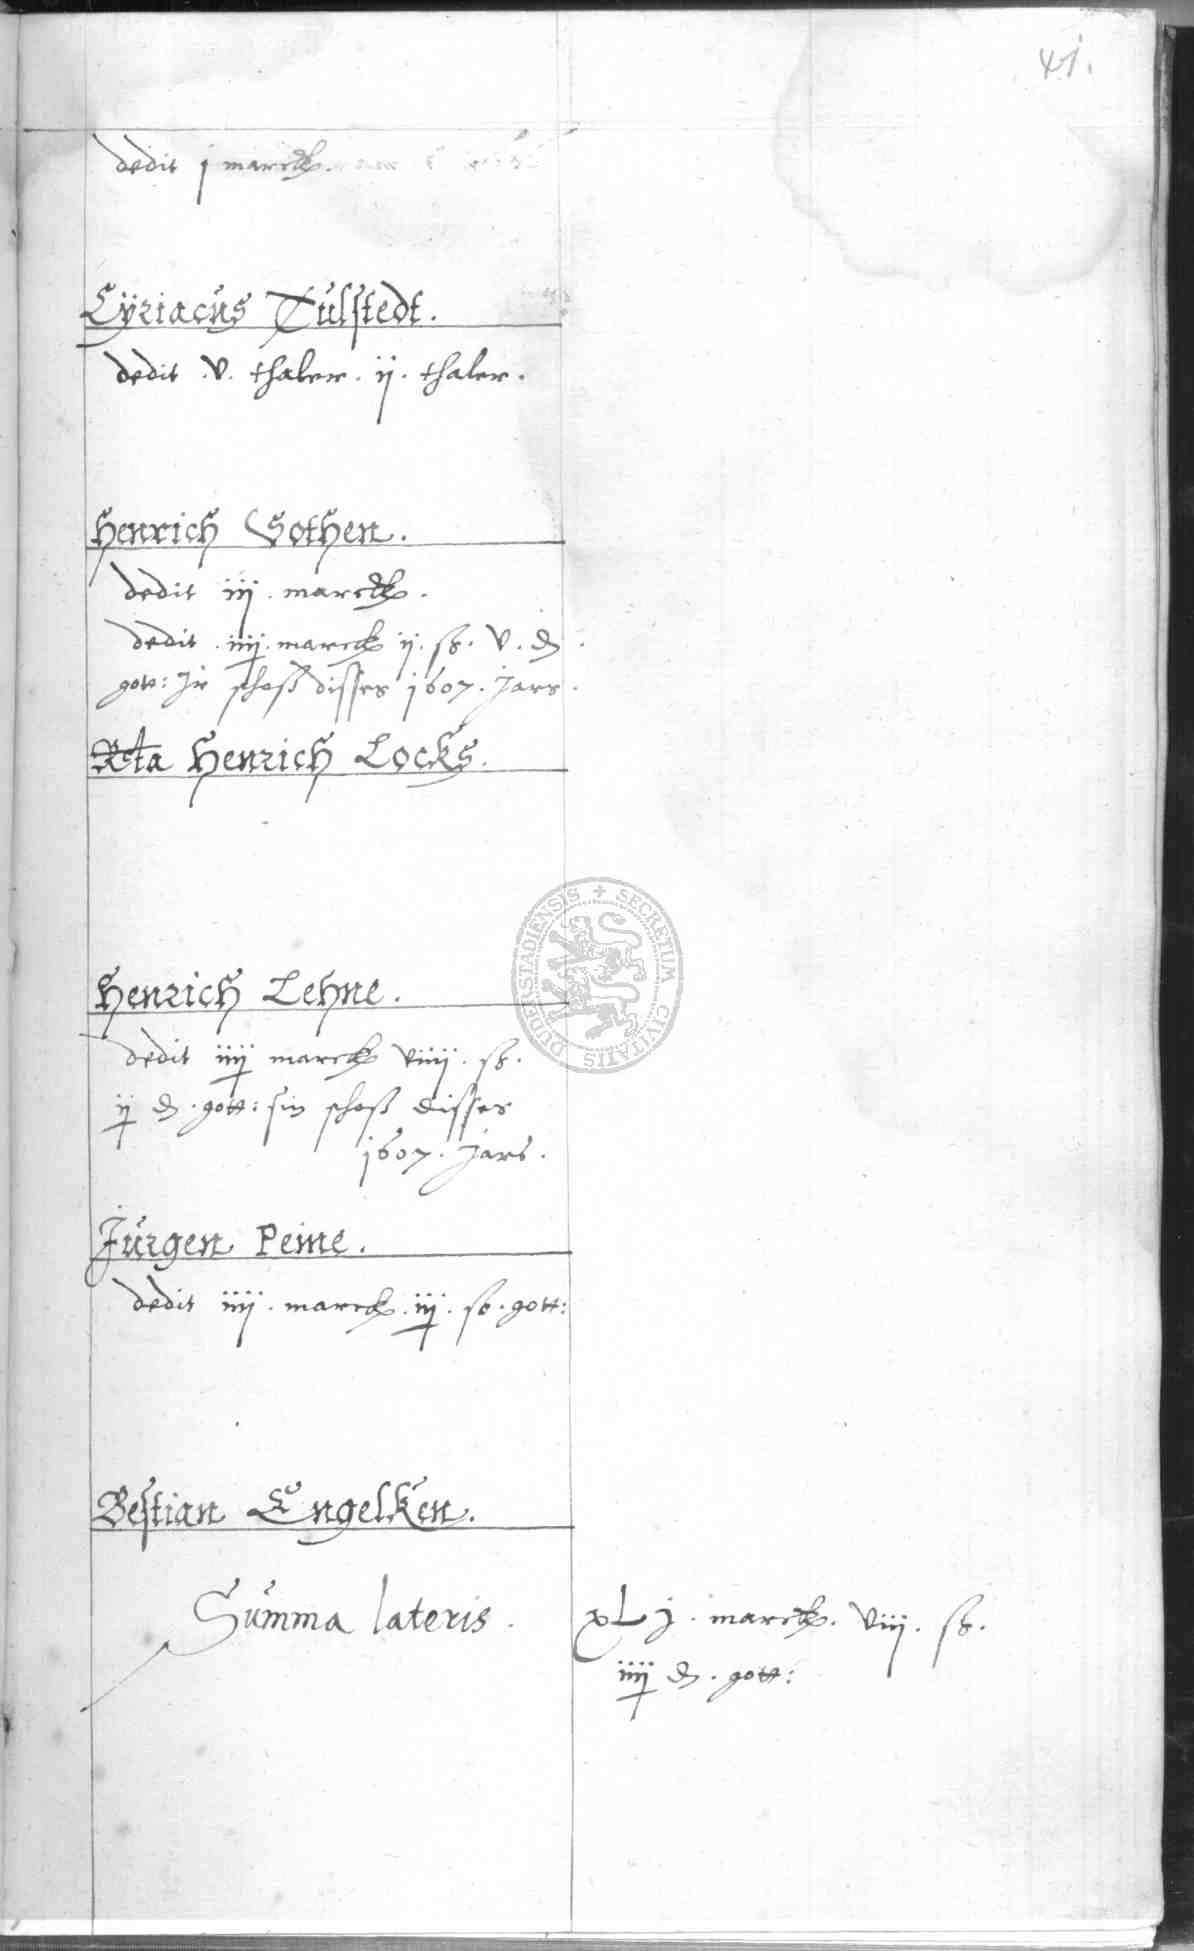 41.
dedit j marck.
Cÿriacus Tulstedt.
dedit .v. thaler. ij. thaler.
Henrich Gothen.
dedit iij. marck.
dedit .iiij. marck ij. ß. v. ₰
gott: Jr schoß disses 1607. Jars.
Rcta Henrich Locks.
Henrich Lehne.
dedit iiij marck viiij. ß.
ij ₰. gott: sin schoß disses
1607. Jars.
Jürgen Peine.
dedit iiij. marck. iij. ß. gott:
Bestian Engelken.
Summa lateris. xLj. marck. viij. ß.
iiij ₰. gott:
SECRETUM CIVITATIS DUDERSTADIENSIS